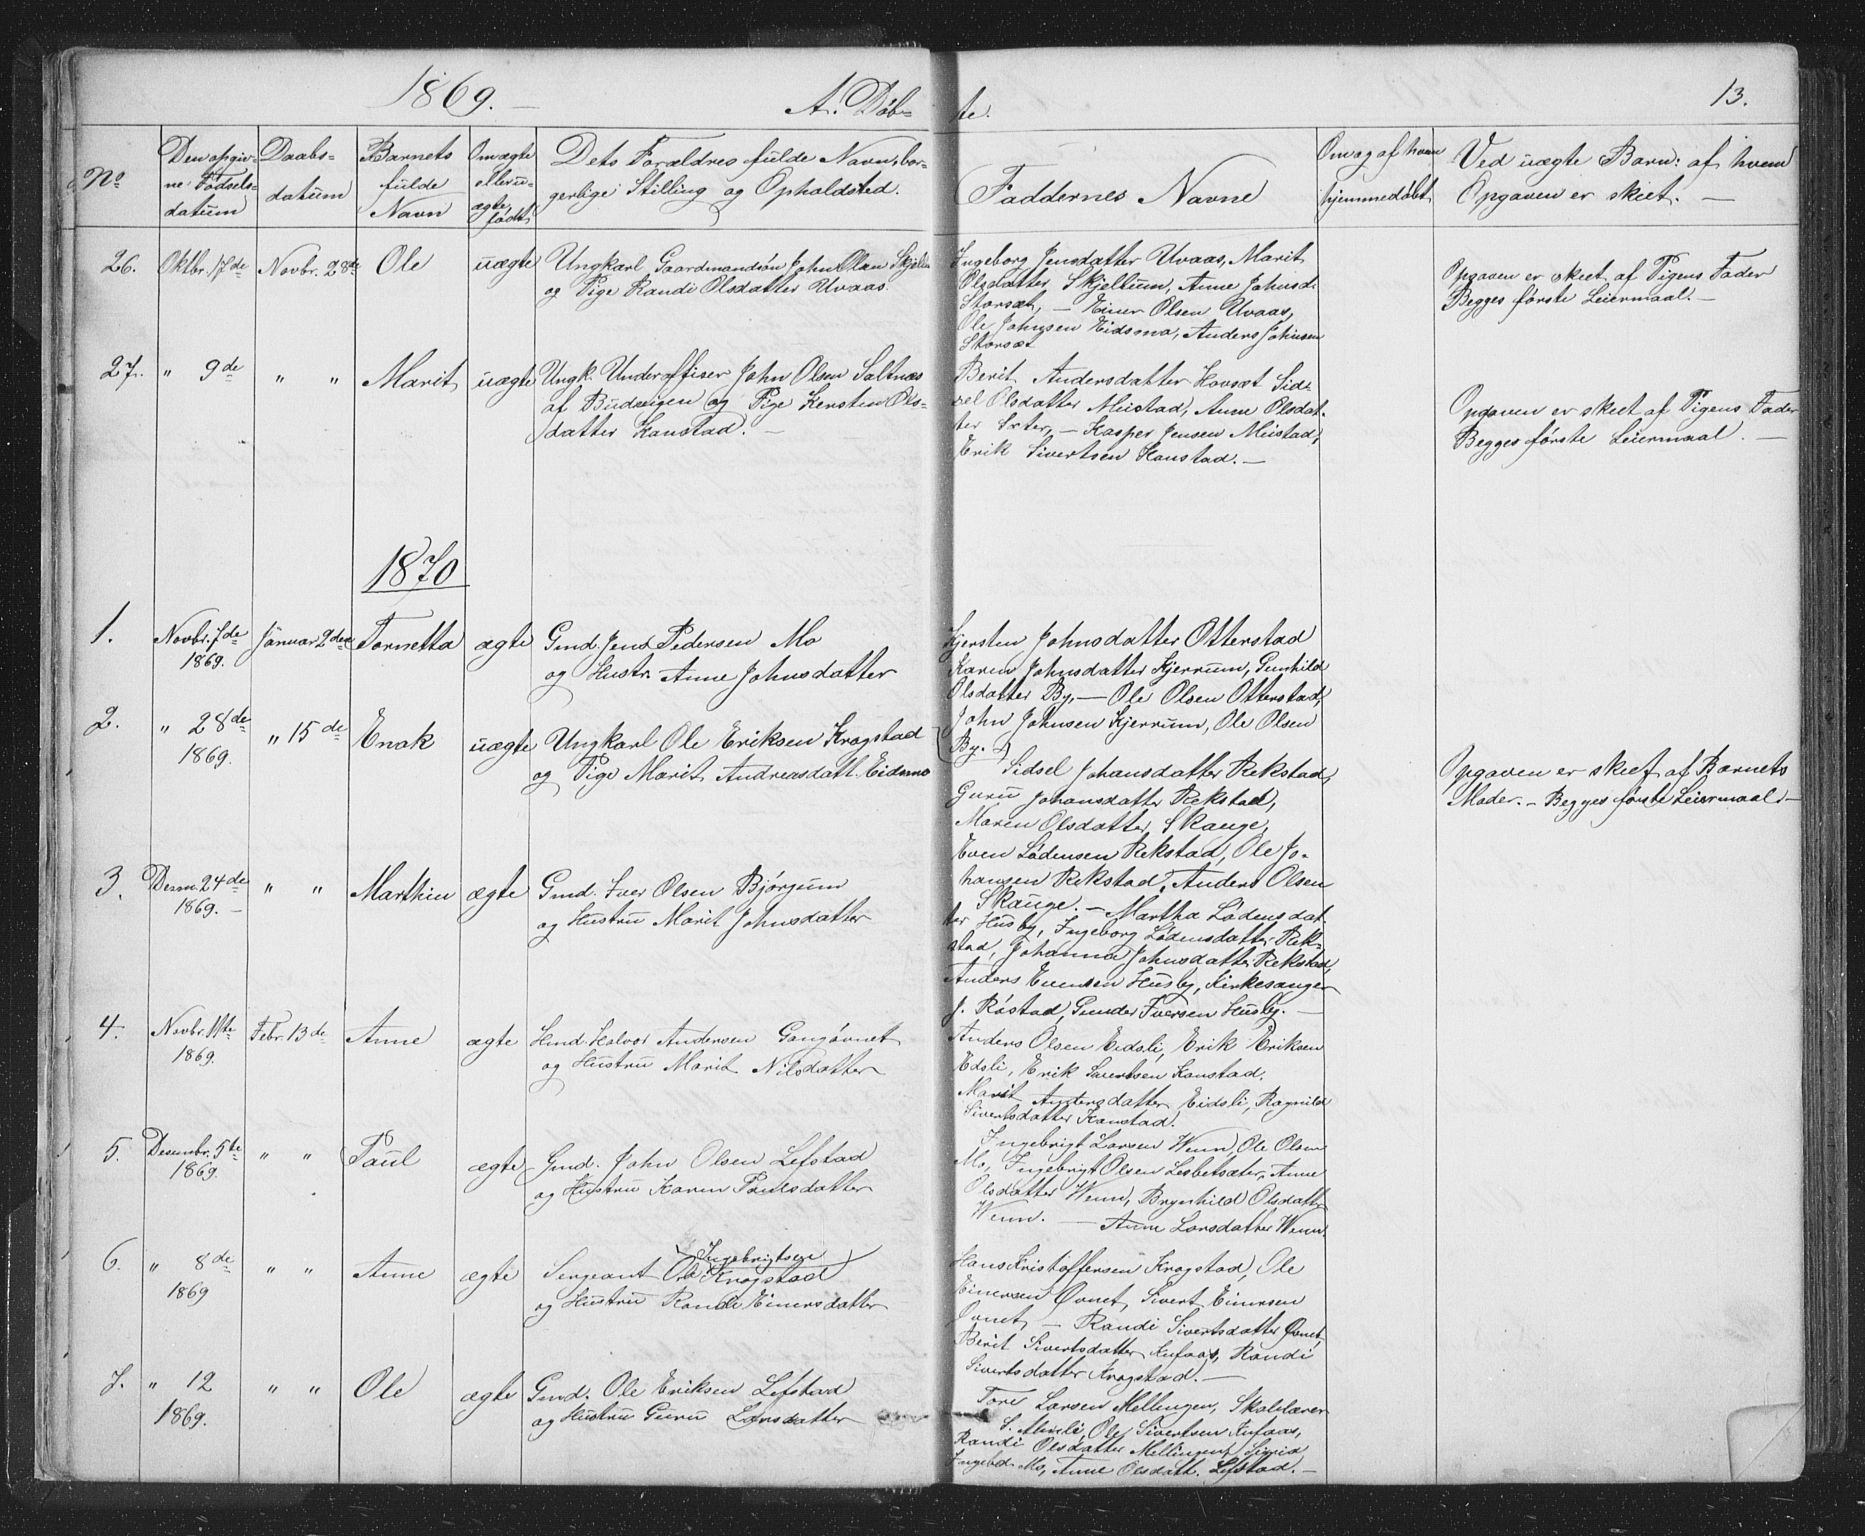 1869. —
A. Døb-
te.
13.
No
Den opgiv-
ne Fødsels-
datum
Daabs-
datum
Barnets
fulde
Navn
Om ægte
eller u-
ægte
født
Dets Forældres fulde Navn, bor-
gerlige Stilling og Opholdsted.
Faddernes Navne
Om og af hvem
hjemmedøbt
Ved uægte Barn: af hvem
Opgaven er skeet. —
26. Oktbr. 17de Novbr. 28de Ole uægte Ungkarl Gaardmandsøn John Olsen
og Pige Randi Olsdatter Uvaas.
Ingeborg Jensdatter Uvaas, Marit
Olsdatter Skjellium, Anne Johnsd.
Storsæt, — Einer Olsen Uvaas,
Ole Johnsen Eidsmo, Anders Johnsen
Storsæt
Opgaven er skeet af Pigens Fader
Begges første Leiermaal. —
27. " 9de " " Marit uægte Ungk. Underoffiser John Olsen Saltnes
af Budseigen og Pige Kersten Ols-
datter Kanstad. —
Berit Andersdatter Hovsæt Sid-
sel Olsdatter Meistad, Anne Olsdat-
ter Sæter, — Kasper Jensen Meistad,
Erik Sivertsen Kanstad. —
Opgaven er skeet af Pigens Fader
Begges første Leiermaal. —
1870
1. Novbr. 7de Januar 2den Tornetta ægte Gmd. Jens Pedersen Mo
1869.
og Hustr. Anne Johnsdatter
Kjersten Johnsdatter Otterstad
Karen Johnsdatter Kjerrum, Gunhild
Olsdatter By, — Ole Olsen Otterstad,
John Johnsen Kjerrum, Ole Olsen
By.
2. " 28de " 15de Enok uægte Ungkarl Ole Eriksen Kragstad
1869.
og Pige Marit Andreasdatt. Eidsmo
Sidsel Johansdatter Rekstad,
Guru Johansdatter Rekstad,
Maren Olsdatter Skauge,
Even Lødensen Rekstad, Ole Jo-
hansen Rekstad, Anders Olsen
Skauge. —
Opgaven er skeet af Barnets
Moder. — Begges første Leiermaal. —
3. Desem. 24de " " Marthin ægte Gmd. Iver Olsen Bjørgum
1869. —
og Hustru Marit Johnsdatter
Martha Lødensdat-
ter Husby, Ingeborg Lødensdatter Rek-
stad, Johanna Johnsdatter Rekstad,
Anders Evensen Husby, Kirkesanger
J. Røstad, Gunder Iversen Husby. —
4. Novbr. 11te Febr. 13de Anne ægte Hmd. Halvor Andersen Gangøvnet
1869.
og Hustru Marit Nilsdatter
Anders Olsen Eidsli, Erik Eriksen
Edsli, Erik Sivertsen Kanstad.
Marit Andersdatter Eidsli, Ragnild
Sivertsdatter Kanstad.
5. Desembr. 5te " " Paul ægte Gmd. John Olsen Lefstad
1869.
og Hustru Karen Paulsdatter
Ingebrigt Larsen Wenn, Ole Olsen
Mo, Ingebrigt Olsen Lesbetsæter, Anne
Olsdatter Wenn, Brynhild Olsdatt.
Wenn. — Anne Larsdatter Wenn
6. " 8de " " Anne ægte Sergeant Ole Ingebrigtsen Kragstad
1869
og Hustru Randi Einersdatter
Hans Kristoffersen Kragstad, Ole
Einersen Øvnet, Sivert Einersen
Øvnet — Randi Sivertsdatter Øvnet,
Berit Sivertsdatter Kufaas, Randi
Sivertsdatter Kragstad. —
7. " 12 " " Ole ægte Gmd. Ole Eriksen Lefstad
1869.
og Hustru Guru Larsdatter
Tore Larsen Mellingen, Skolelærer
S. Ole Sivertsen Kufaas,
Randi Olsdatter Mellingen, Sigrid
Ingebd. Mo, Anne Olsdatt. Lefstad. —